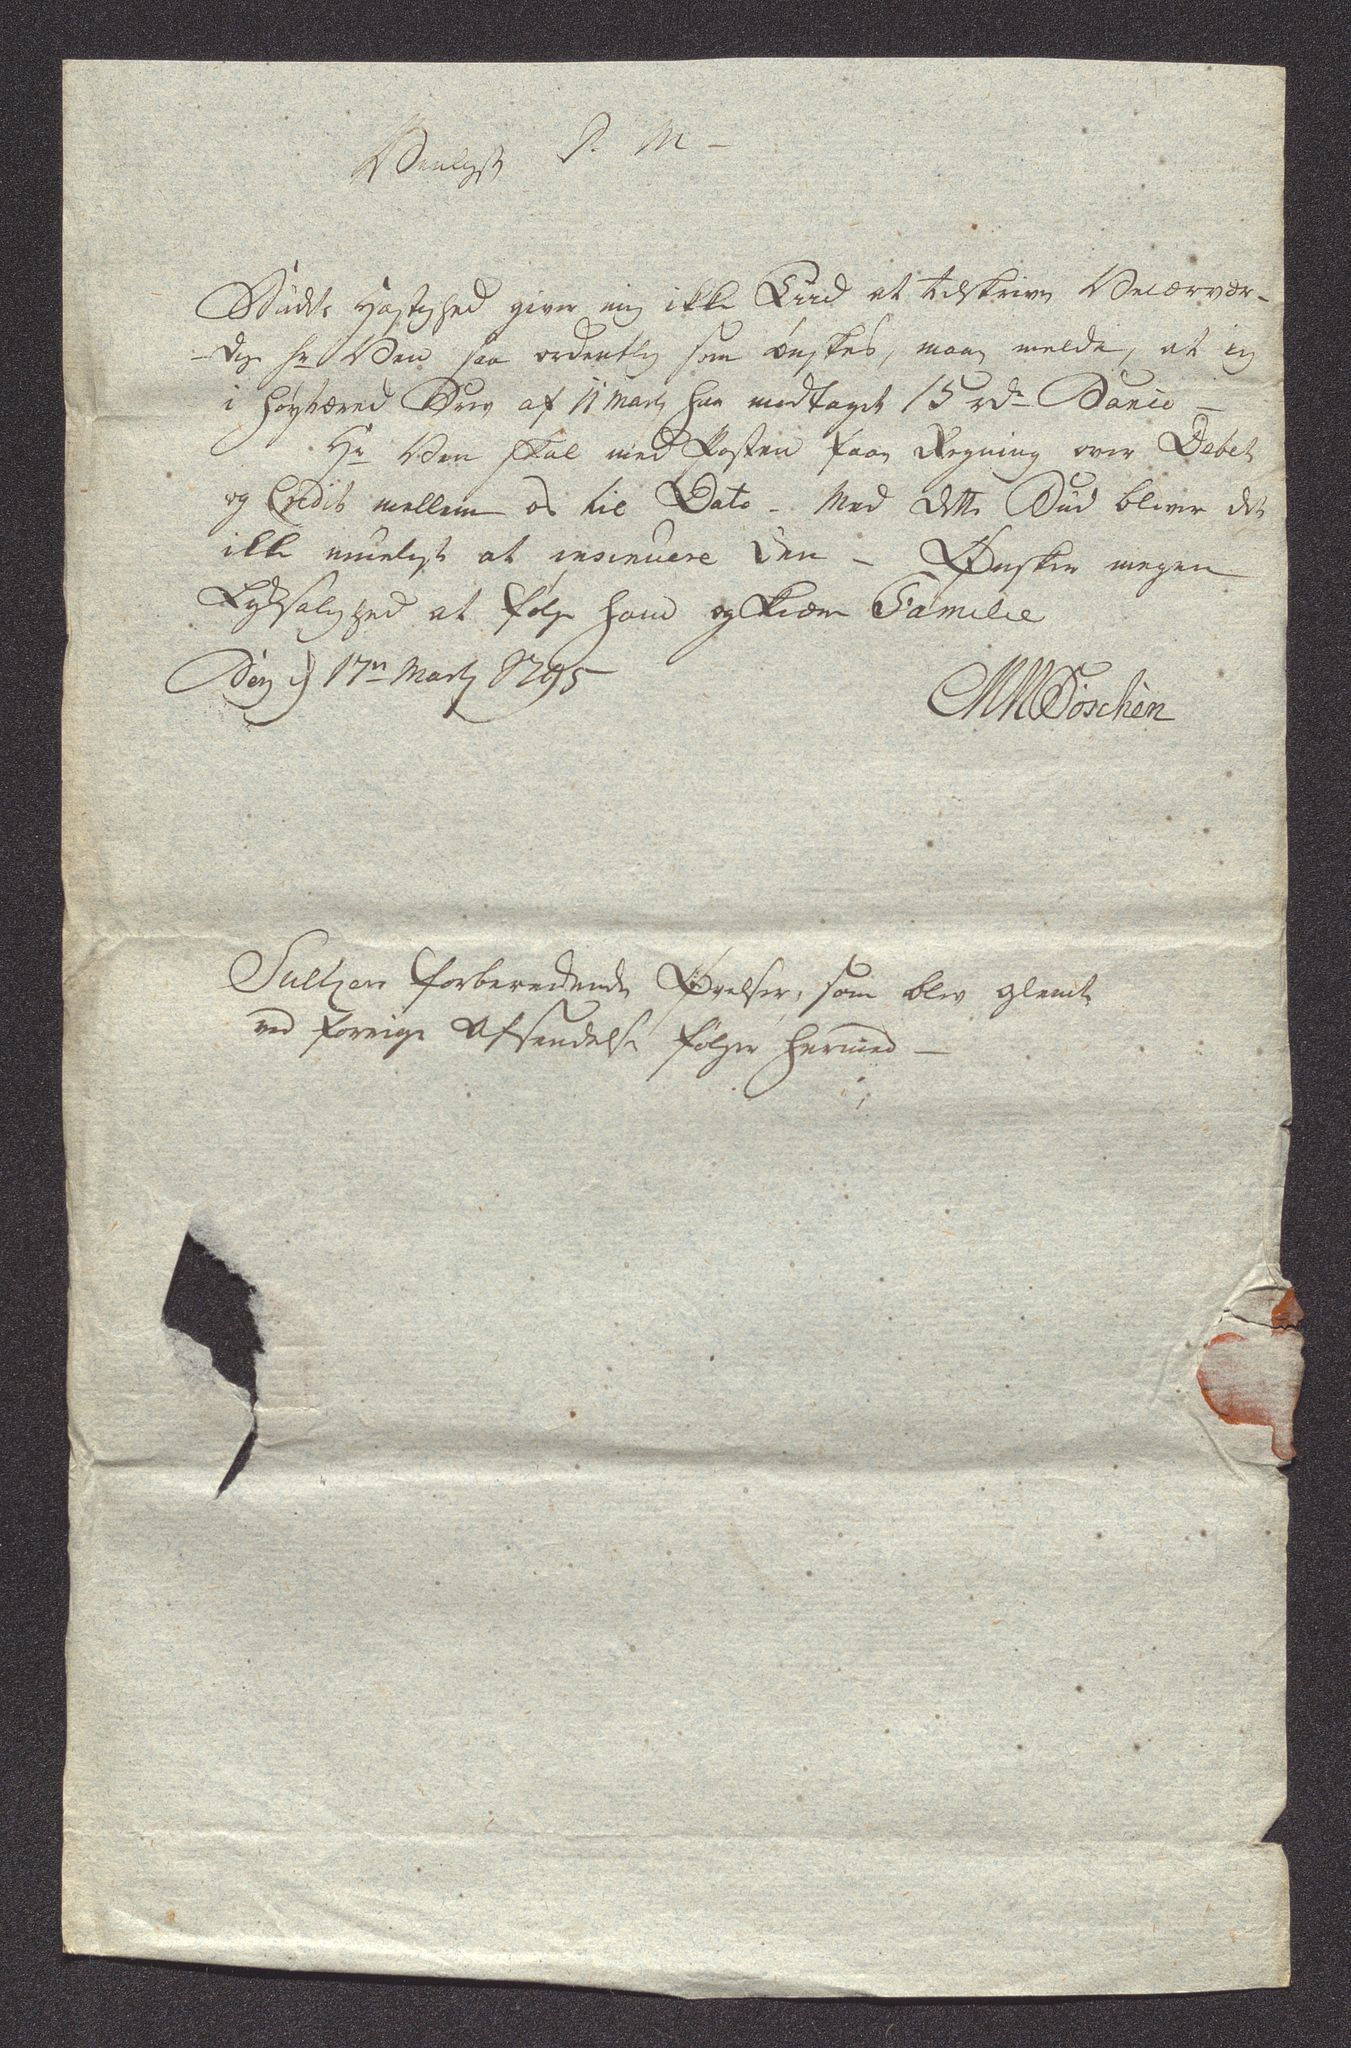 Venligst P. M –
Budets Hastighed giver mig ikke Tiid at tilskrive Velærvær-
-dige Hr Ven saa ordentlig som ønskes, maae melde, at jeg
i høystærede Brev af 11 Marti har modtaget 15 rdr Banco –
Hr Ven skal med Posten faae Regning over Debet
og Credit mellem os til Dato – Med dette Bud bliver det
ikke mueligt at insinuere den – Ønsker megen
Lyksalighed at følge ham og kiære Familie
17n Marti 1795
MM Döschen
Sultzers forberedende Øvelser, som blev glemt
ved forrige Afsendelse følger hermed –